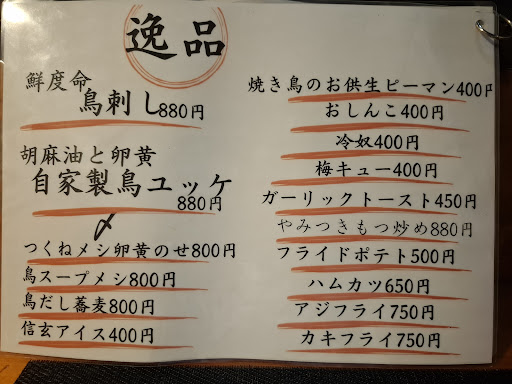 逸品
鮮度命
鳥刺し880円
胡麻油と卵黄
自家製鳥ユッケ
880円
〆
つくねメシ卵黄のせ800円
鳥スープメシ800円
鳥だし蕎麦800円
信玄アイス400円
焼き鳥のお供生ピーマン400円
おしんこ400円
冷奴400円
梅キュー400円
ガーリックトースト450円
やみつきもつ炒め880円
フライドポテト500円
ハムカツ650円
アジフライ750円
カキフライ750円